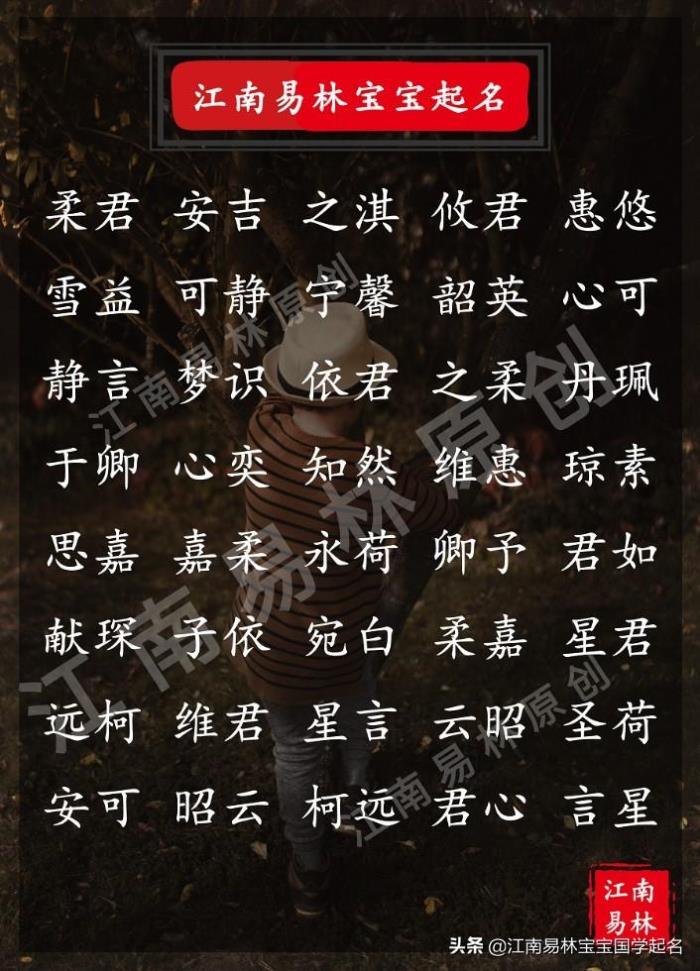 江南易林宝宝起名
柔君 安吉 之淇 攸君 惠悠
雪益 可静 宁馨 韶英 心可
静言 梦识 依君 之柔 丹珮
于卿 心奕 知然 维惠 琼素
思嘉 嘉柔 永荷 卿予 君如
献琛 子依 宛白 柔嘉 星君
远柯 维君 星言 云昭 圣荷
安可 昭云 柯远 君心 言星
江南易林原创
江南易林原创
江南易林原创
江南
易林
头条 @江南易林宝宝国学起名